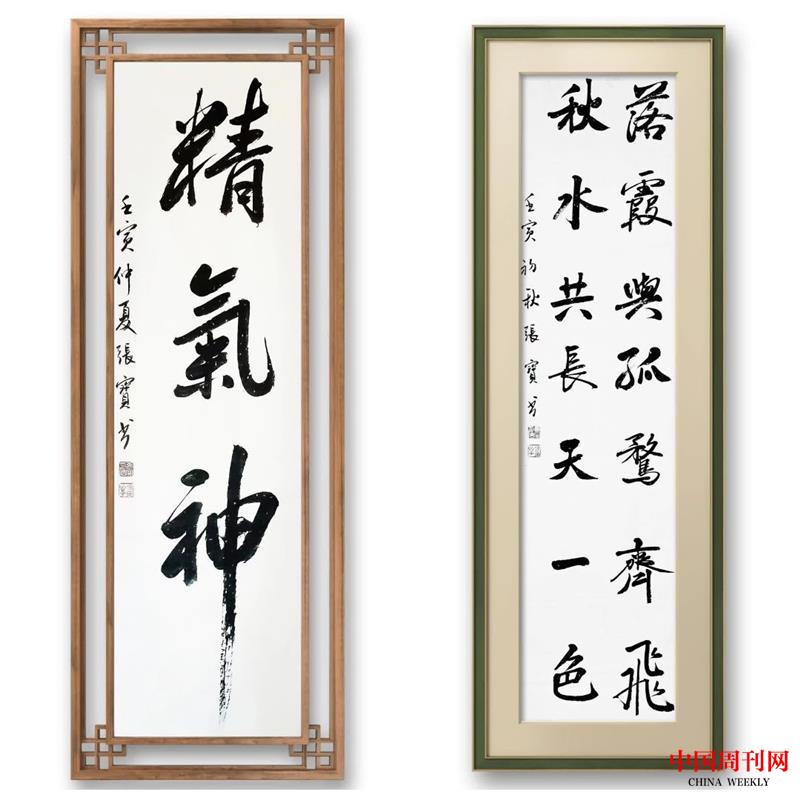 精氣神
壬寅仲夏張寶書
落霞與孤鶩齊飛
秋水共長天一色
壬寅初秋張寶書
中国周刊网
CHINA WEEKLY